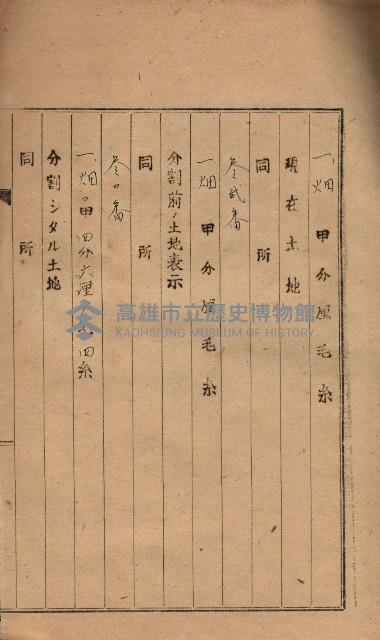 一、畑 甲分厘毛糸
現在土地
同所
参弐番
一、畑 甲分厘毛糸
分割前ノ土地表示
同所
参〇番
一、畑〇甲四分六厘 四糸
分割シタル土地
同所
高雄市立歷史博物館
KAOHSIUNG MUSEUM OF HISTORY